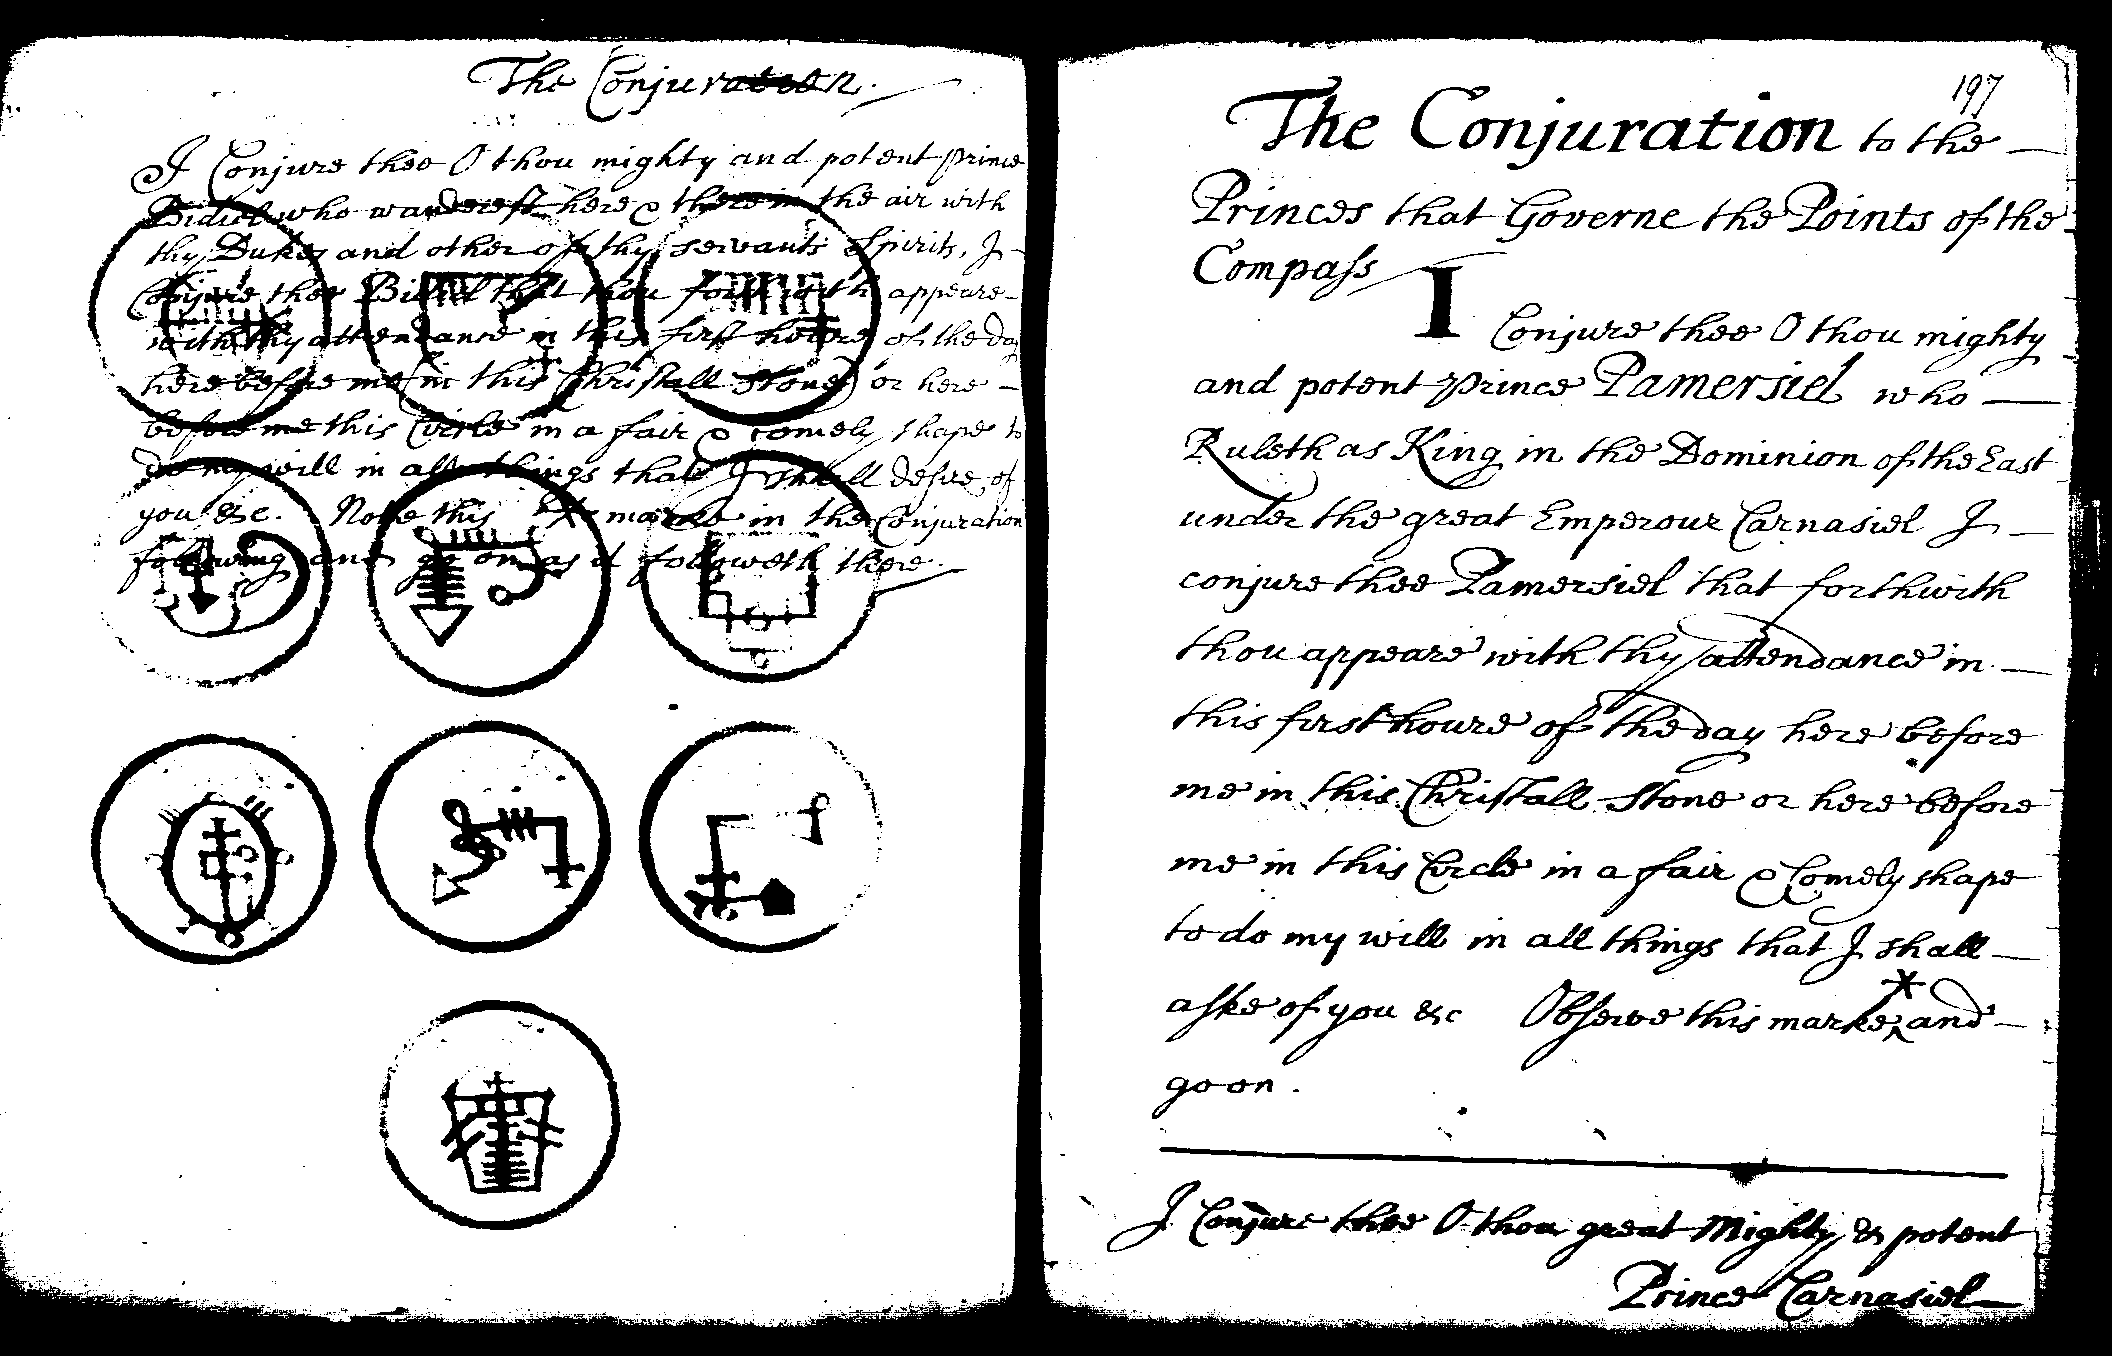 The Conjuration.
I Conjure thee O thou mighty and potent Prince
Bidiel who wanderest here & there in the air with
thy Dukes and other of thy servants Spirits, I
Conjure thee Bidiel that thou forthwith appeare
with thy attendance in this first houre of the day
here before me in this Christall Stone or here
before me this Circle in a fair & comely shape to
do my will in all things that I shall desire of
you &c. Note this * marke in the Conjuration
following and go on as it followeth there.
197
The Conjuration to the
Princes that Governe the Points of the
Compass
I Conjure thee O thou mighty
and potent Prince Pamersiel who
Ruleth as King in the Dominion of the East
under the great Emperour Carnasiel I
conjure thee Pamersiel that forthwith
thou appeare with thy attendance in
this first houre of the day here before
me in this Christall Stone or here before
me in this Circle in a fair & Comely shape
to do my will in all things that I shall
aske of you &c Observe this marke * and
go on.
I Conjure thee O thou great Mighty & potent
Prince Carnasiel